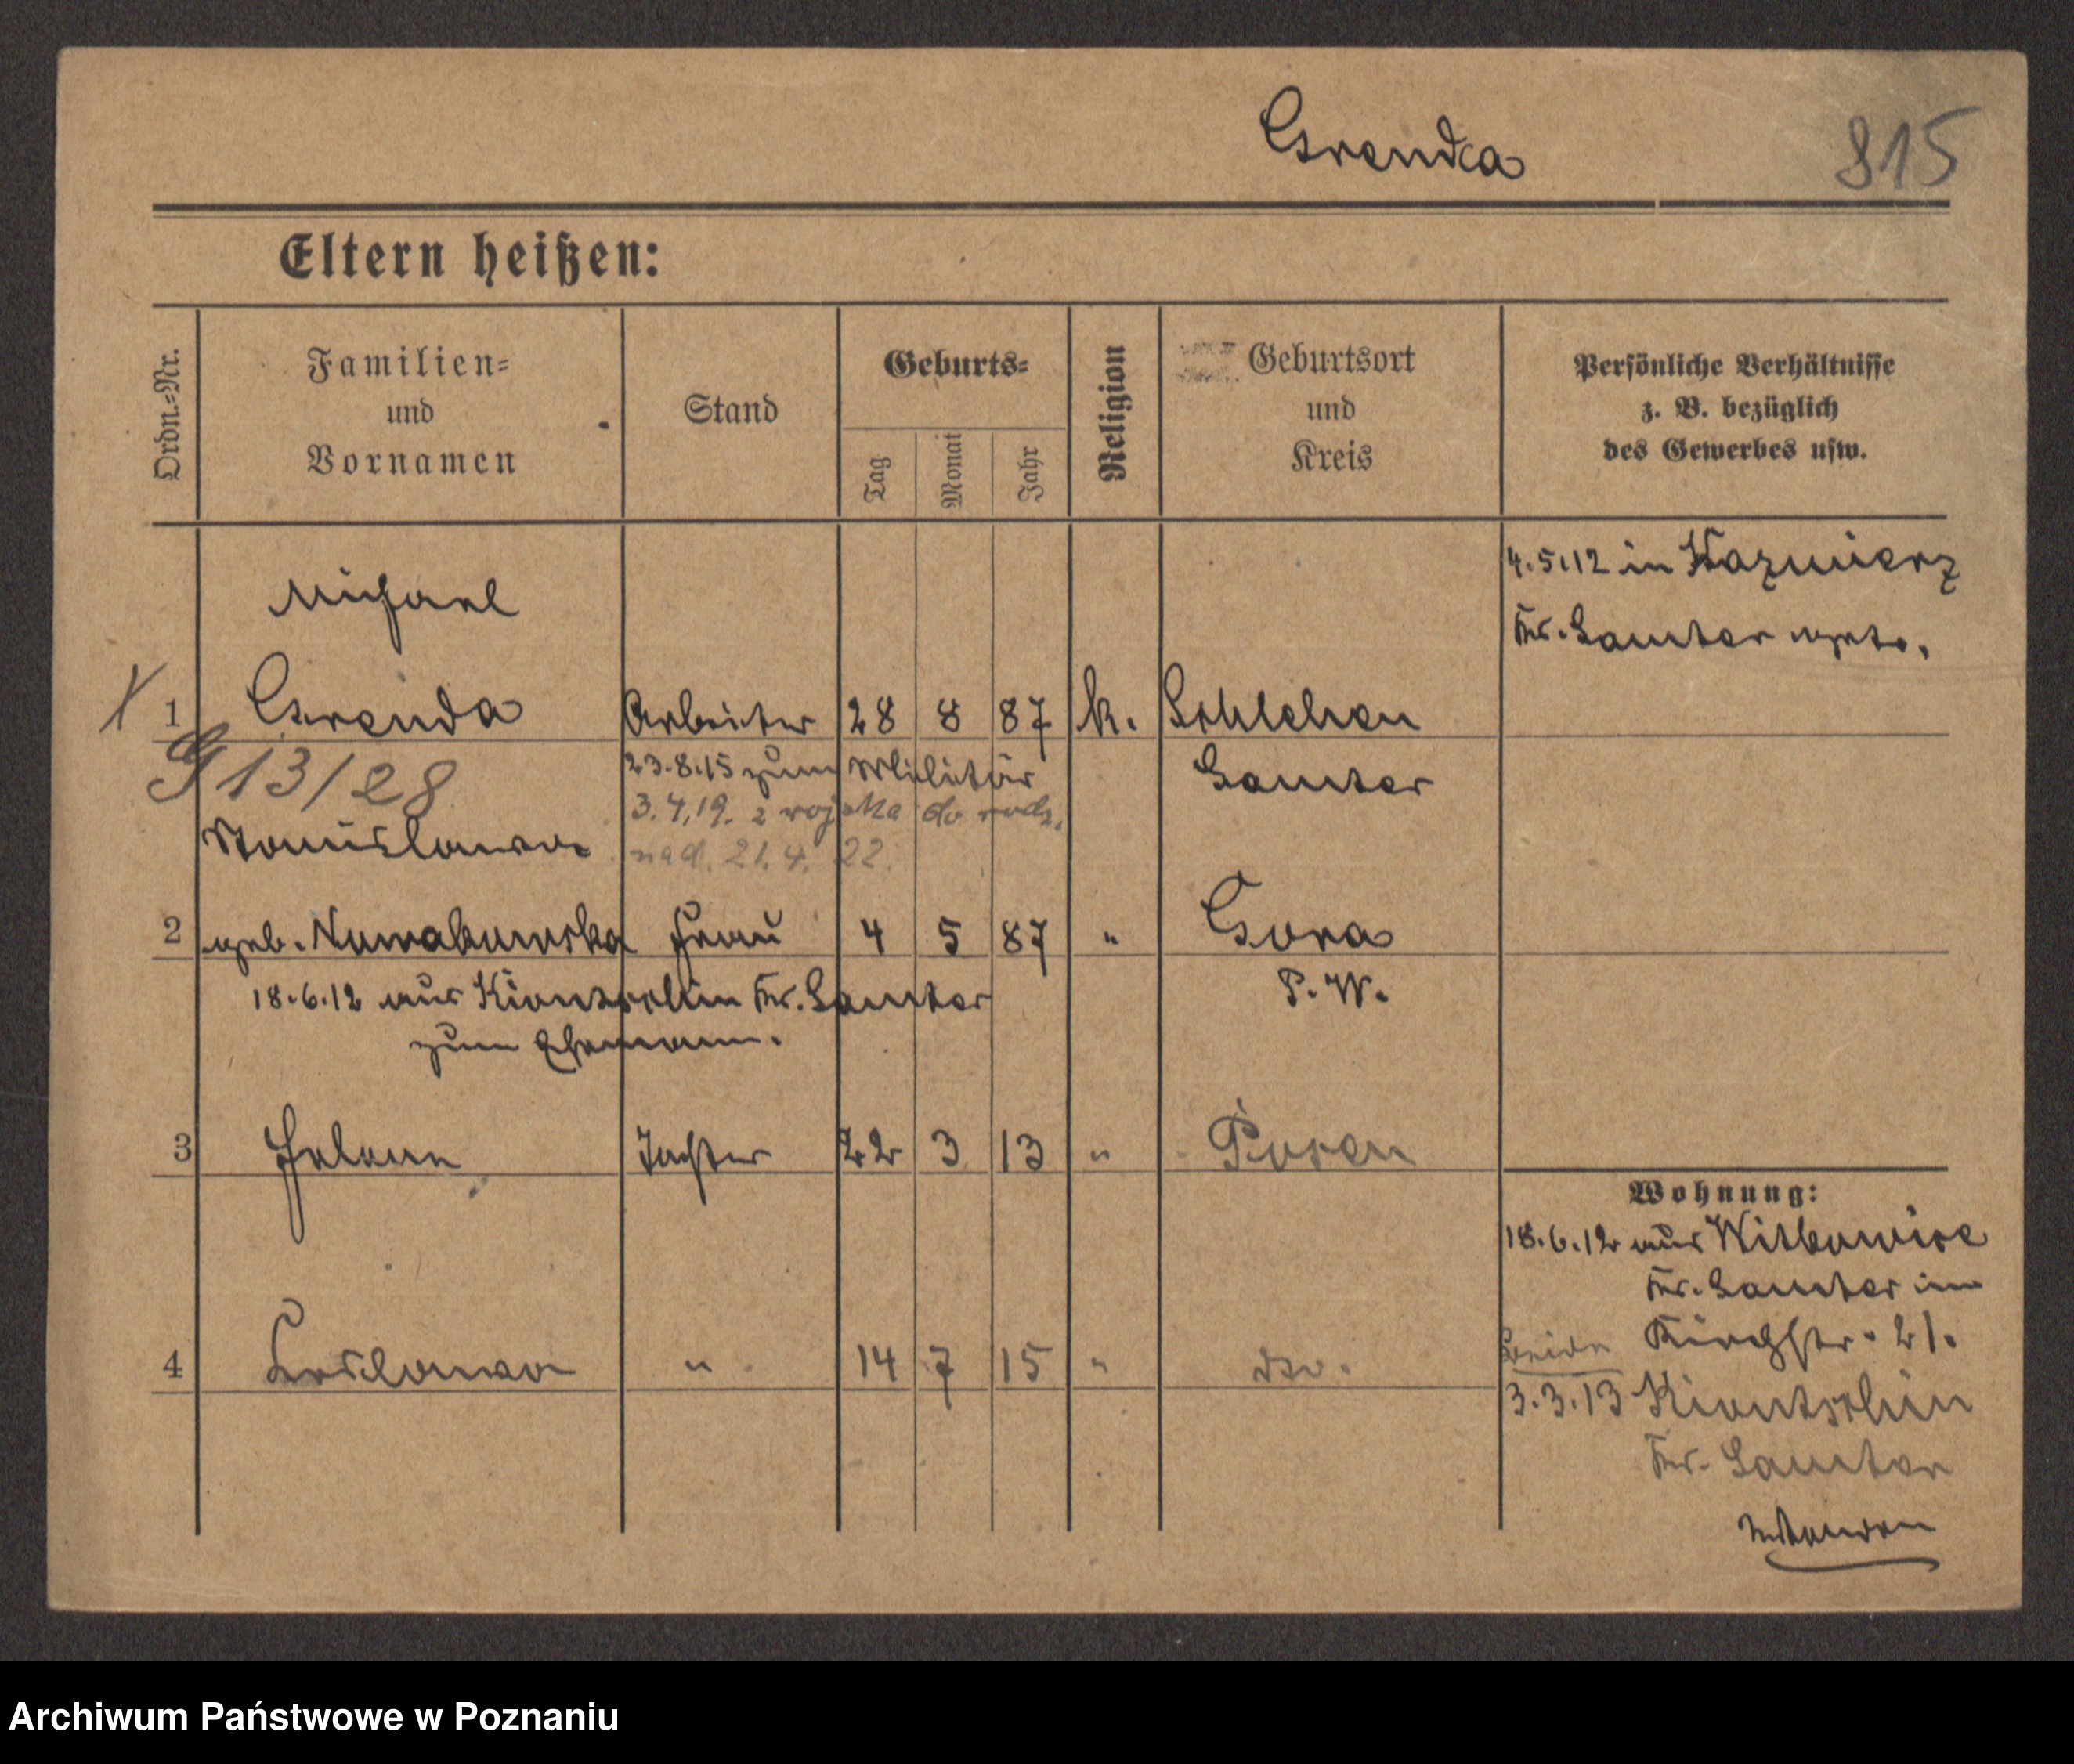 Grenda
815
Eltern heißen:
Ordn.-Nr.
Familien-
und
Vornamen
Stand
Geburts-
Tag
Monat
Jahr
Religion
Geburtsort
und
Kreis
Persönliche Verhältnisse
z. B. bezüglich
des Gewerbes usw.
4.5.12 in Kazmierz
Kr. Samter
Michael
1 Grenda Arbeiter 28 8 87 k.
Samter
G 13/28
23.8.15 zum Militär
3.4.19. z wojska do rodz.
nad. 21.4.22.
Stanislawa
2 geb. Nowakowska Frau 4 5 87 " Gora
P. W.
18.6.12 aus Kiontschin Kr. Samter
zum Ehemann.
3 Helene Tochter 22 3 13 " Posen
Wohnung:
18.6.12 aus Witkowice
Kr. Samter in
Kirchstr. 21.
4 " 14 7 15 " dto.
beide
3.3.13 Kiontschin
Kr. Samter
Archiwum Państwowe w Poznaniu